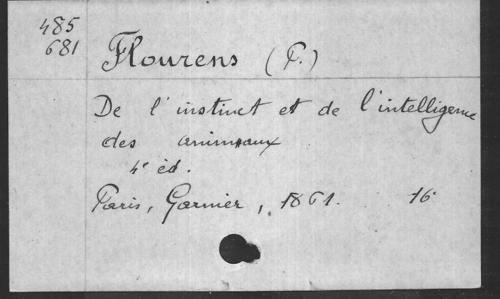 485
681
Flourens (P.)
De l'instinct et de l'intelligence
des animaux
4e éd.
Paris, Garnier, 1861. 16°